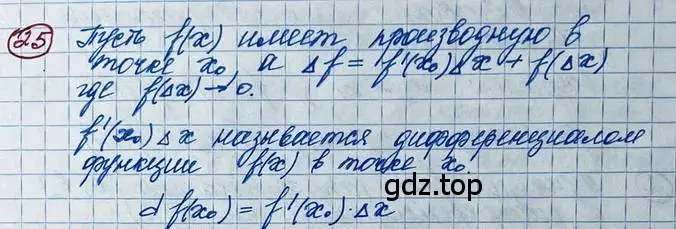 25 Пусть f(x) имеет производную в
точке x₀ а Δf = f'(x₀)Δx + f(Δx)
где f(Δx) → 0.
f'(x₀)Δx называется дифференциалом
функции f(x) в точке x₀.
d f(x₀) = f'(x₀)·Δx
gdz.top